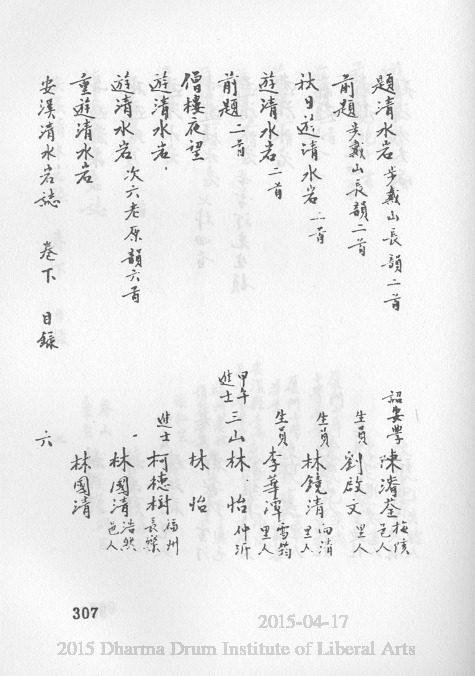 題清水岩步戴山長韻二首 詔安學陳濬荃梅隂邑人
前題步戴山長韻二首 生員劉啟文里人
秋日遊清水岩二首 生員林鏡清向清里人
遊清水岩二首 生員李華潭雪筠里人
前題二首 甲午進士三山林怡仲沂
僧樓夜望 林怡
遊清水岩 進士柯德樹福州長樂
遊清水岩次六老原韻六首 林國清浩然邑人
重遊清水岩 林國清
安溪清水岩誌 卷下 目錄 六
307
2015-04-17
2015 Dharma Drum Institute of Liberal Arts